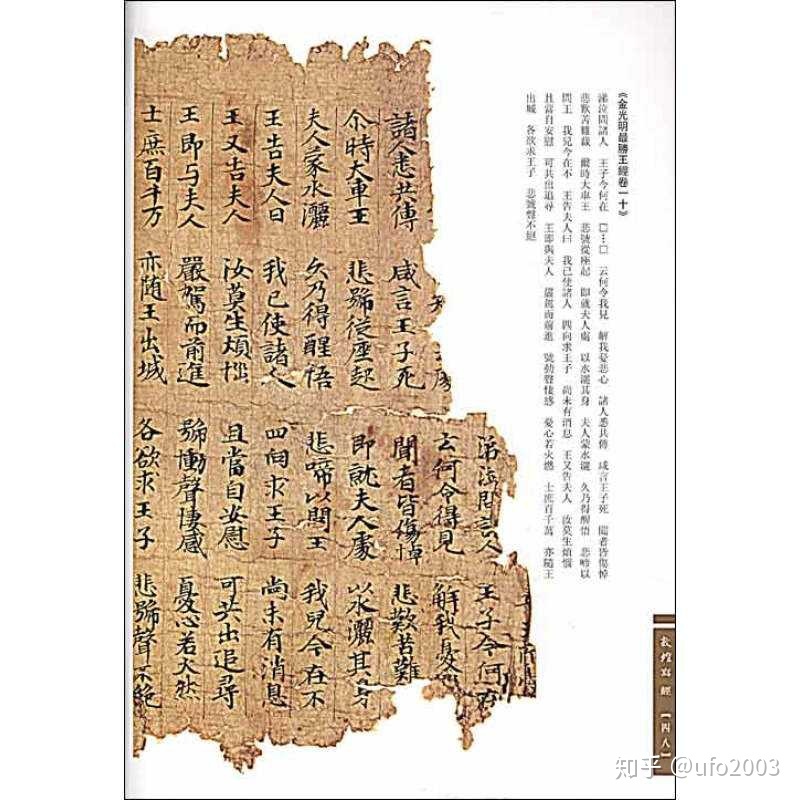 《金光明最勝王經卷一十》
涕泣問諸人 王子今何在 □…□ 云何令我見 解我憂悲心 諸人悉共傳 咸言王子死 聞者皆傷悼
悲歎苦難裁 爾時大車王 悲號從座起 即就夫人處 以水灑其身 夫人蒙水灑 久乃得醒悟 悲啼以
問王 我兒今在不 王告夫人曰 我已使諸人 四向求王子 尚未有消息 王又告夫人 汝莫生煩惱
且當自安慰 可共出追尋 王即與夫人 嚴駕而前進 號動聲悽感 憂心若火燃 士庶百千萬 亦隨王
出城 各欲求王子 悲號聲不絕
涕泣問諸人 王子今何在
云何令得見 解我憂
諸人悉共傳 咸言王子死 聞者皆傷悼 悲歎苦難
尒時大車王 悲號從座起 即就夫人處 以水灑其身
夫人蒙水灑 久乃得醒悟 悲啼以問王 我兒今在不
王告夫人曰 我已使諸人 四向求王子 尚未有消息
王又告夫人 汝莫生煩惱 且當自安慰 可共出追尋
王即與夫人 嚴駕而前進 號慟聲悽感 憂心若火然
士庶百千万 亦随王出城 各欲求王子 悲號聲不絕
敦煌寫經【四八】
知乎 @ufo2003